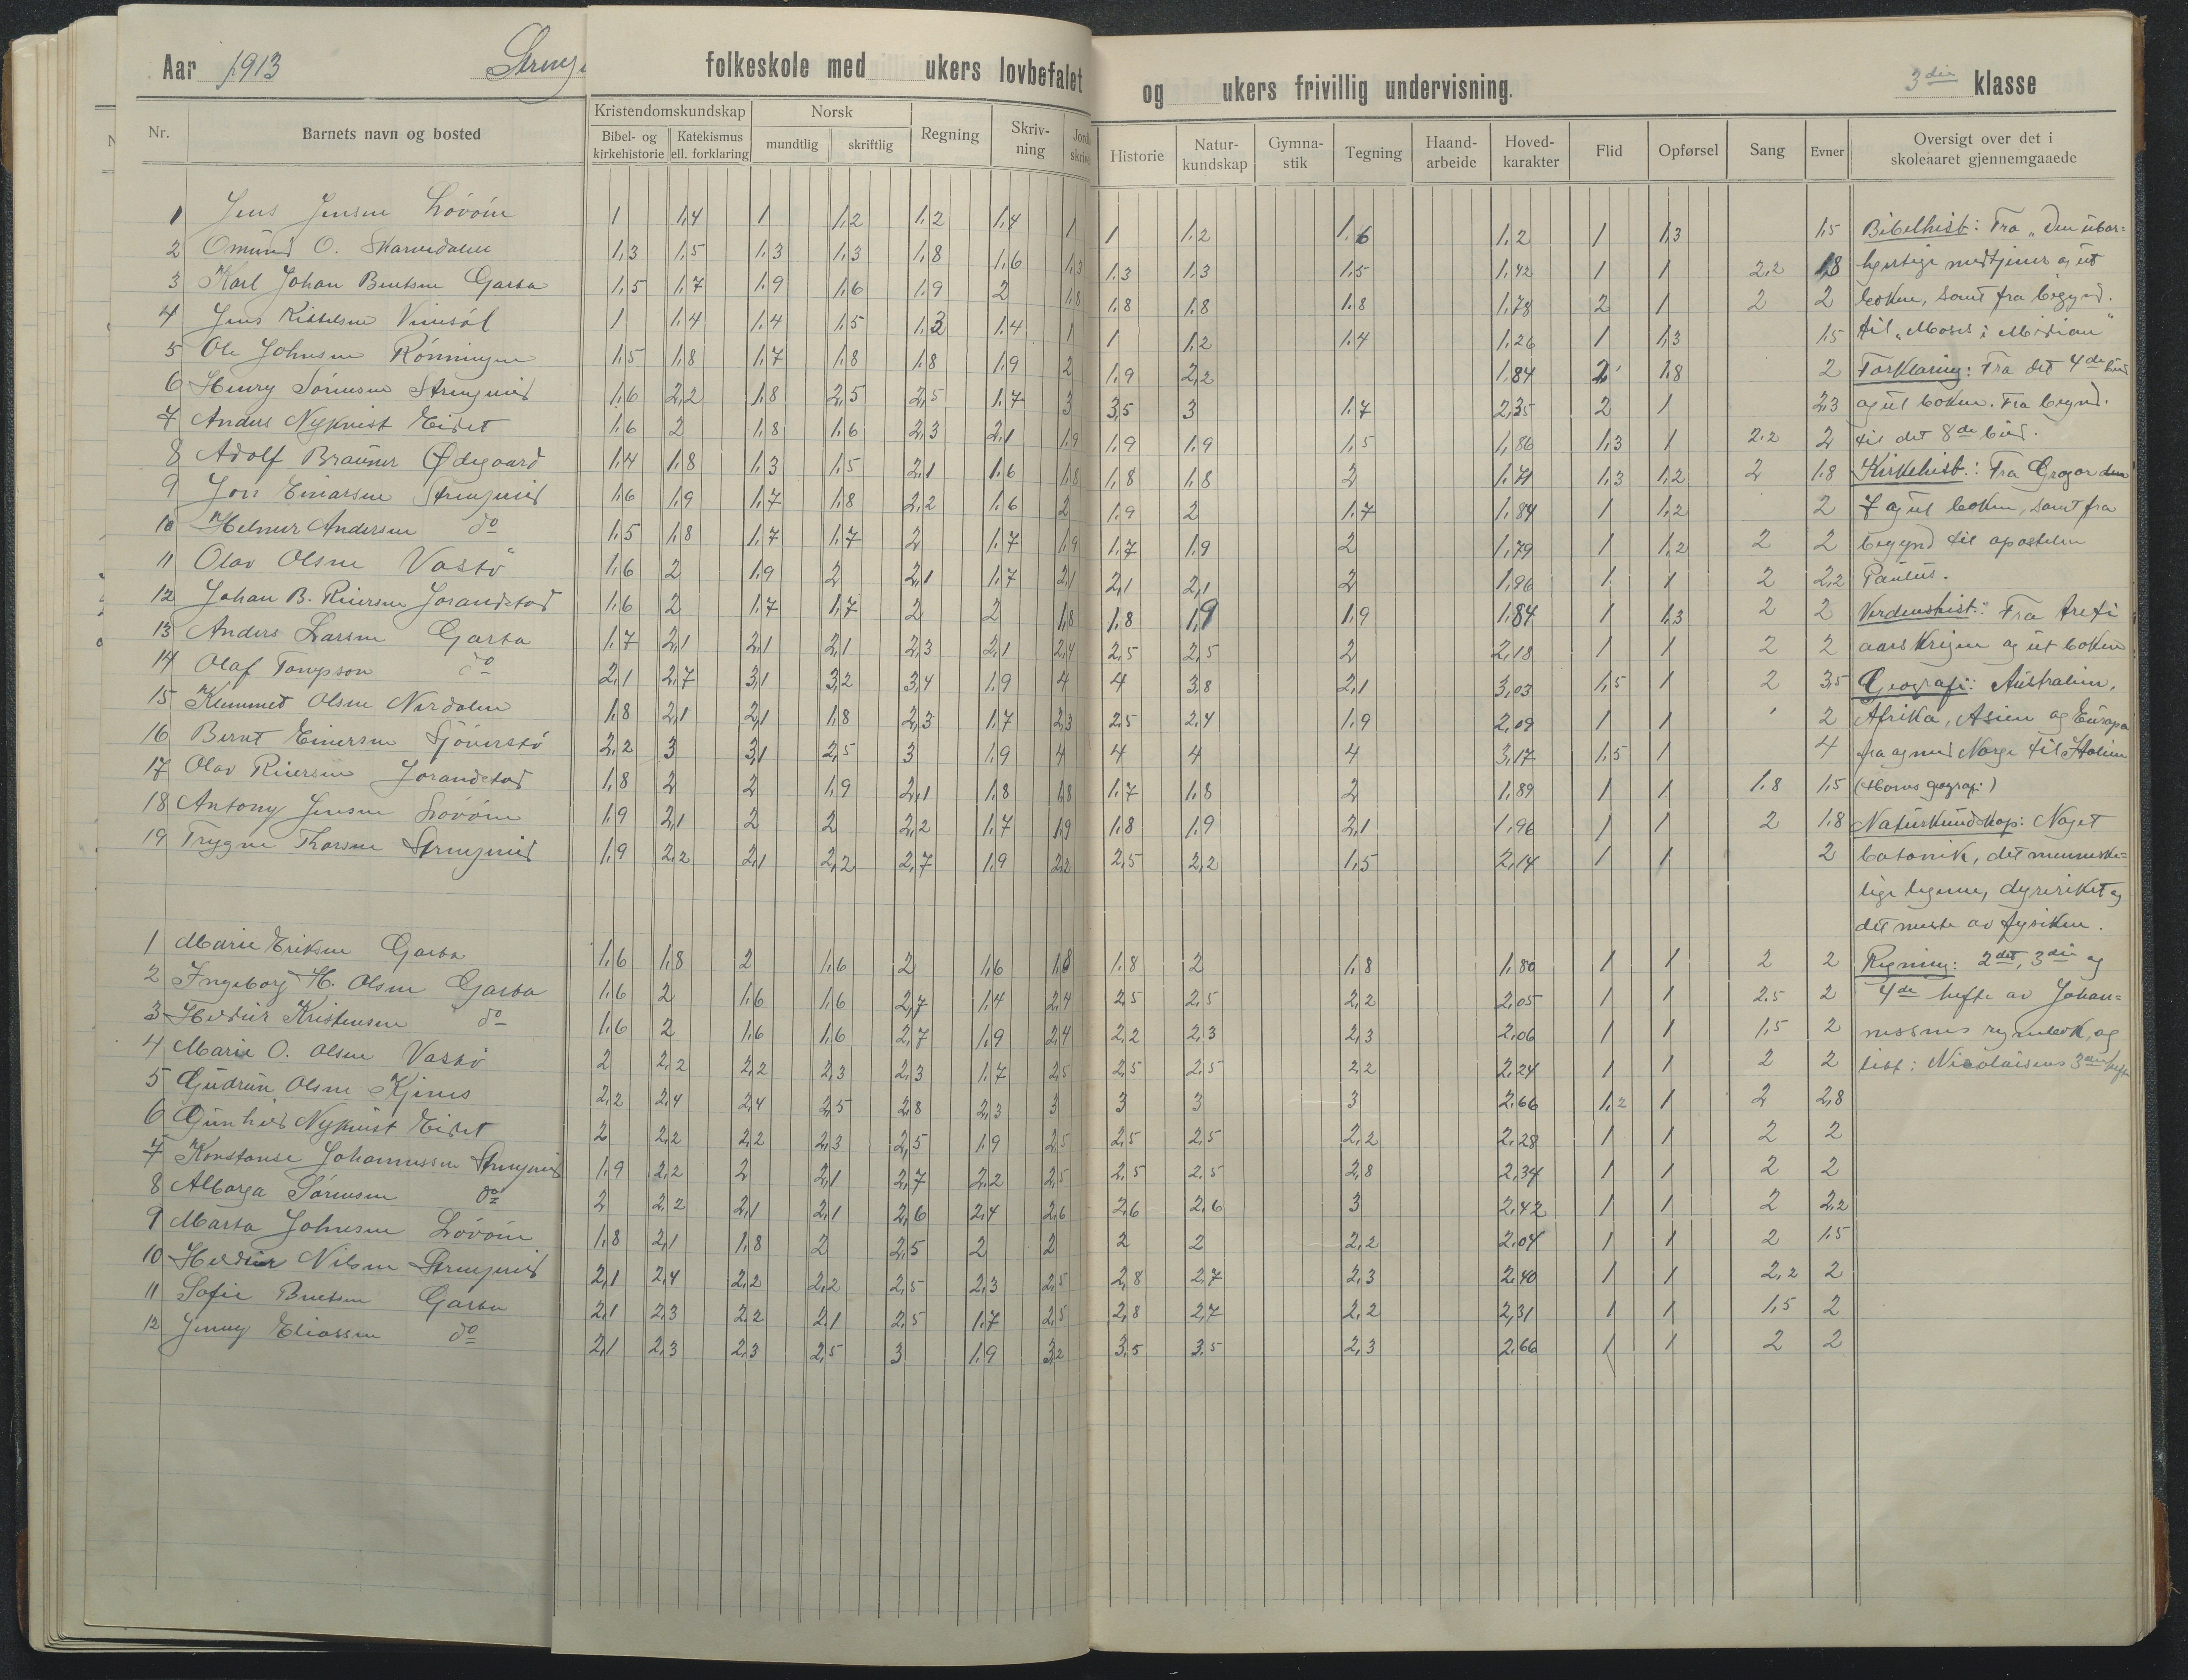 Aar 1913
folkeskole med ukers lovbefalet
og ukers frivillig undervisning.
3die klasse
Nr. Barnets navn og bosted Kristendomskundskap Norsk Regning Skriv-ning Historie Natur-kundskap Gymna-stik Tegning Haand-arbeide Hoved-karakter Flid Opførsel Sang Evner Oversigt over det i skoleaaret gjennemgaaede
Bibel- og kirkehistorie Katekismus ell. forklaring mundtlig skriftlig
1 Jens Jensen Løvøen 1 1,4 1 1,2 1,2 1,4 1 1 1,2 1,6 1,2 1 1,3 1,5 Bibelhist: Fra "Den ubar=
2 Omund O. Skarvedalen 1,3 1,5 1,3 1,3 1,8 1,6 1,3 1,3 1,3 1,5 1,42 1 1 2,2 1,8 hjertige medtjener og ut
3 Karl Johan Bentsen Garta 1,5 1,7 1,9 1,6 1,9 2 1,8 1,8 1,8 1,8 1,78 2 1 2 2 boken, samt fra begynd.
4 Jens Kittelsen 1 1,4 1,4 1,5 1,3 1,4 1 1 1,2 1,4 1,26 1 1,3 1,5 til "Moses i Midian"
5 Ole Johnsen Rønningen 1,5 1,8 1,7 1,8 1,8 1,9 2 1,9 2,2 1,84 2 1,8 2 Forklaring: Fra det 4de bud
6 Henry Sørensen Strengereid 1,6 2,2 1,8 2,5 2,5 1,7 3 3,5 3 1,7 2,35 2 1 2,3 og ut boken. Fra begynd.
7 Anders Nykvist Eidet 1,6 2 1,8 1,6 2,3 2,1 1,9 1,9 1,9 1,5 1,86 1,3 1 2,2 2 til det 8de bud.
8 Adolf Ødegaard 1,4 1,8 1,3 1,5 2,1 1,6 1,8 1,8 1,8 2 1,71 1,3 1,2 2 1,8 Kirkehist.: Fra Gregor den
9 Einarsen Strengereid 1,6 1,9 1,7 1,8 2,2 1,6 2 1,9 2 1,7 1,84 1 1,2 2 7 og ut boken, samt fra
10 Helmer Andersen do 1,5 1,8 1,7 1,7 2 1,7 1,9 1,7 1,9 2 1,79 1 1,2 2 2 begynd til apostelen
11 Olav Olsen Vastø 1,6 2 1,9 2 2,1 1,7 2,1 2,1 2,1 2 1,96 1 1 2 2,2 Paulus.
12 Johan B. Reiersen Jorandstad 1,6 2 1,7 1,7 2 2 1,8 1,8 1,9 1,9 1,84 1 1,3 2 2 Verdenshist: Fra treti
13 Anders Larsen Garta 1,7 2,1 2,1 2,1 2,3 2,1 2,4 2,5 2,5 2 2,18 1 1 2 2 aars krigen og ut boken
14 Olaf do 2,1 2,7 3,1 3,2 3,4 1,9 4 4 3,8 2,1 3,03 1,5 1 2 3,5 Geografi: Australien,
15 Klemmet Olsen Nordalen 1,8 2,1 2,1 1,8 2,3 1,7 2,3 2,5 2,4 1,9 2,09 1 1 2 Afrika, Asien og Europa
16 Bernt Einersen 2,2 3 3,1 2,5 3 1,9 4 4 4 4 3,17 1,5 1 4 fra og med Norge til Italien
17 Olav Reiersen Jorandstad 1,8 2 2 1,9 2,1 1,8 1,8 1,7 1,8 2 1,89 1 1 1,8 1,5 (Horns geografi)
18 Antony Jensen Løvøen 1,9 2,1 2 2 2,2 1,7 1,9 1,8 1,9 2,1 1,96 1 1 2 1,8 Naturkundskap: Noget
19 Trygve Thorsen Strengereid 1,9 2,2 2,1 2,2 2,7 1,9 2,2 2,5 2,2 1,5 2,14 1 1 2 botanik, det menneske=
lige legeme, dyreriket og
det meste av fysiken.
1 Marie Eriksen Garta 1,6 1,8 2 1,6 2 1,6 1,8 1,8 2 1,8 1,80 1 1 2 2 Regning: 2det, 3die og
2 Ingeborg H. Olsen Garta 1,6 2 1,6 1,6 2,7 1,4 2,4 2,5 2,5 2,2 2,05 1 1 2,5 2 4de hefte av Johan=
3 Heddur Kristensen do 1,6 2 1,6 1,6 2,7 1,9 2,4 2,2 2,3 2,3 2,06 1 1 1,5 2 nessens regnebok, og
4 Marie O. Olsen Vastø 2 2,2 2,2 2,3 2,3 1,7 2,5 2,5 2,5 2,2 2,24 1 1 2 2 Nicolaisens 3die hefte
5 Gudrun Olsen 2,2 2,4 2,4 2,5 2,8 2,3 3 3 3 3 2,66 1,2 1 2 2,8
6 Gunhild Nykvist Eidet 2 2,2 2,2 2,3 2,5 1,9 2,5 2,5 2,5 2,2 2,28 1 1 2 2
7 Konstanse Johannessen Strengereid 1,9 2,2 2 2,1 2,7 2,2 2,5 2,5 2,5 2,8 2,34 1 1 2 2
8 Alborga Sørensen do 2 2,2 2,1 2,1 2,6 2,4 2,6 2,6 2,6 3 2,42 1 1 2 2,2
9 Marta Johnsen Løvøen 1,8 2,1 1,8 2 2,5 2 2 2 2 2,2 2,04 1 1 2 1,5
10 Heddur Nilsen Strengereid 2,1 2,4 2,2 2,2 2,5 2,3 2,5 2,8 2,7 2,3 2,40 1 1 2,2 2
11 Sofie Bentsen Garta 2,1 2,3 2,2 2,1 2,5 1,7 2,5 2,8 2,7 2,2 2,31 1 1 1,5 2
12 Jenny Eliassen do 2,1 2,3 2,3 2,5 3 1,9 3,2 3,5 3,5 2,3 2,66 1 1 2 2